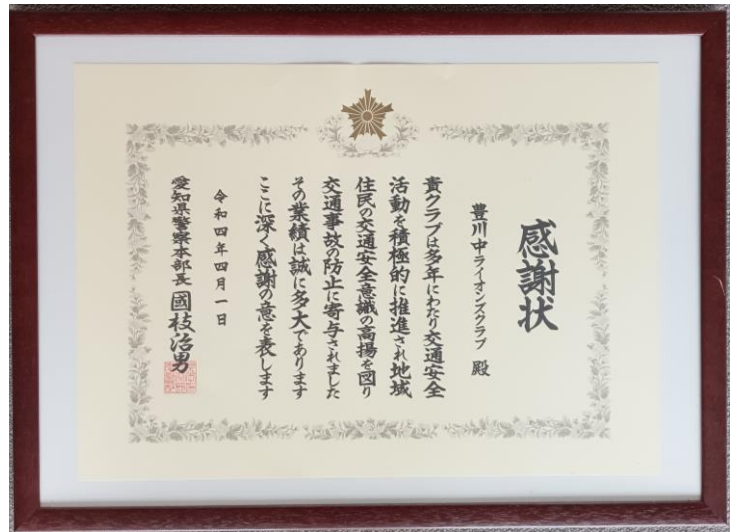 感謝状
豊川中ライオンズクラブ 殿
貴クラブは多年にわたり交通安全
活動を積極的に推進され地域
住民の交通安全意識の高揚を図り
交通事故の防止に寄与されました
その業績は誠に多大であります
ここに深く感謝の意を表します
令和四年四月一日
愛知県警察本部長 國枝治男